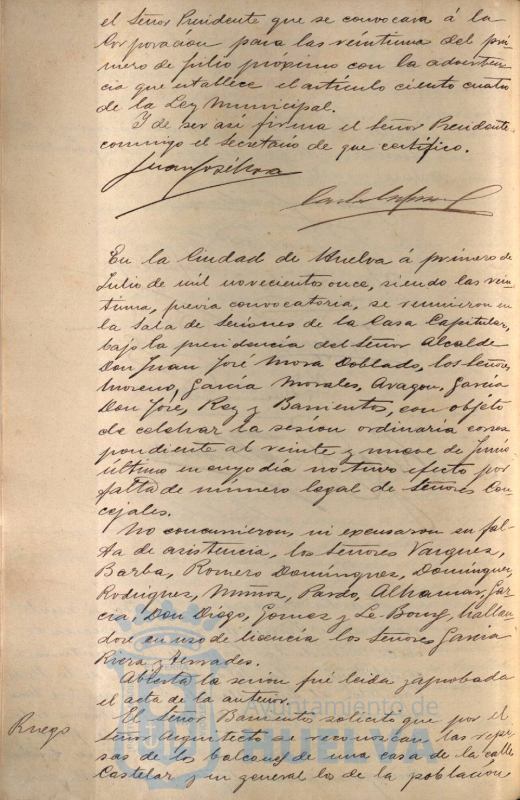 el Señor Presidente que se convocara á la
Corporación para las veintiuna del pri-
mero de Julio próximo con la adverten-
cia que establece el artículo ciento cuatro
de la Ley Municipal.
Y de ser así firma el Señor Presidente
conmigo el Secretario de que certifico.
Juan José Mora
En la Ciudad de Huelva á primero de
Julio de mil novecientos once, siendo las vein-
tiuna, previa convocatoria, se reunieron en
la Sala de Sesiones de la Casa Capitular,
bajo la presidencia del Señor Alcalde
Don Juan José Mora Doblado, los Señores
Moreno, García Morales, Aragon, García
Don José, Rey y Barrientos, con objeto
de celebrar la sesión ordinaria corres
pondiente al veinte y nueve de Junio
último en cuyo día no tuvo efecto por
falta de número legal de Señores Con-
cejales.
No concurrieron, ni excusaron su fal-
ta de asistencia, los Señores Vazquez,
Barba, Romero Domínguez, Domínguez,
Rodriguez, Muñoz, Pardo, Alhamar, Gar
cia, Don Diego, Gomez y Le-Bourg, hallan-
dose en uso de licencia los Señores García
Riera y Terrades.
Abierta la sesion fué leida y aprobada
el acta de la anterior.
Ruego
El Señor Barrientos solicitó que por el
Señor Arquitecto se reconozcan las repi-
sas de los balcones de una casa de la calle
Castelar y en general los de la población
Ayuntamiento de
HUELVA